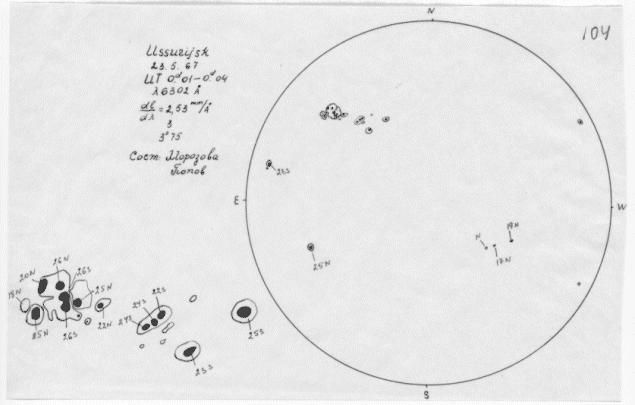 104
Ussurijsk
23.5.67
UT 0ᵈ01-0ᵈ04
λ6302 Å
dl/dλ = 2,53 mm/Å
3
3°75
Сост. Морозова
Попов
N
E
W
S
25N
N
17N
19N
20N
26N
26S
18N
25N
22N
25N
26S
24S
22S
27S
23S
25S